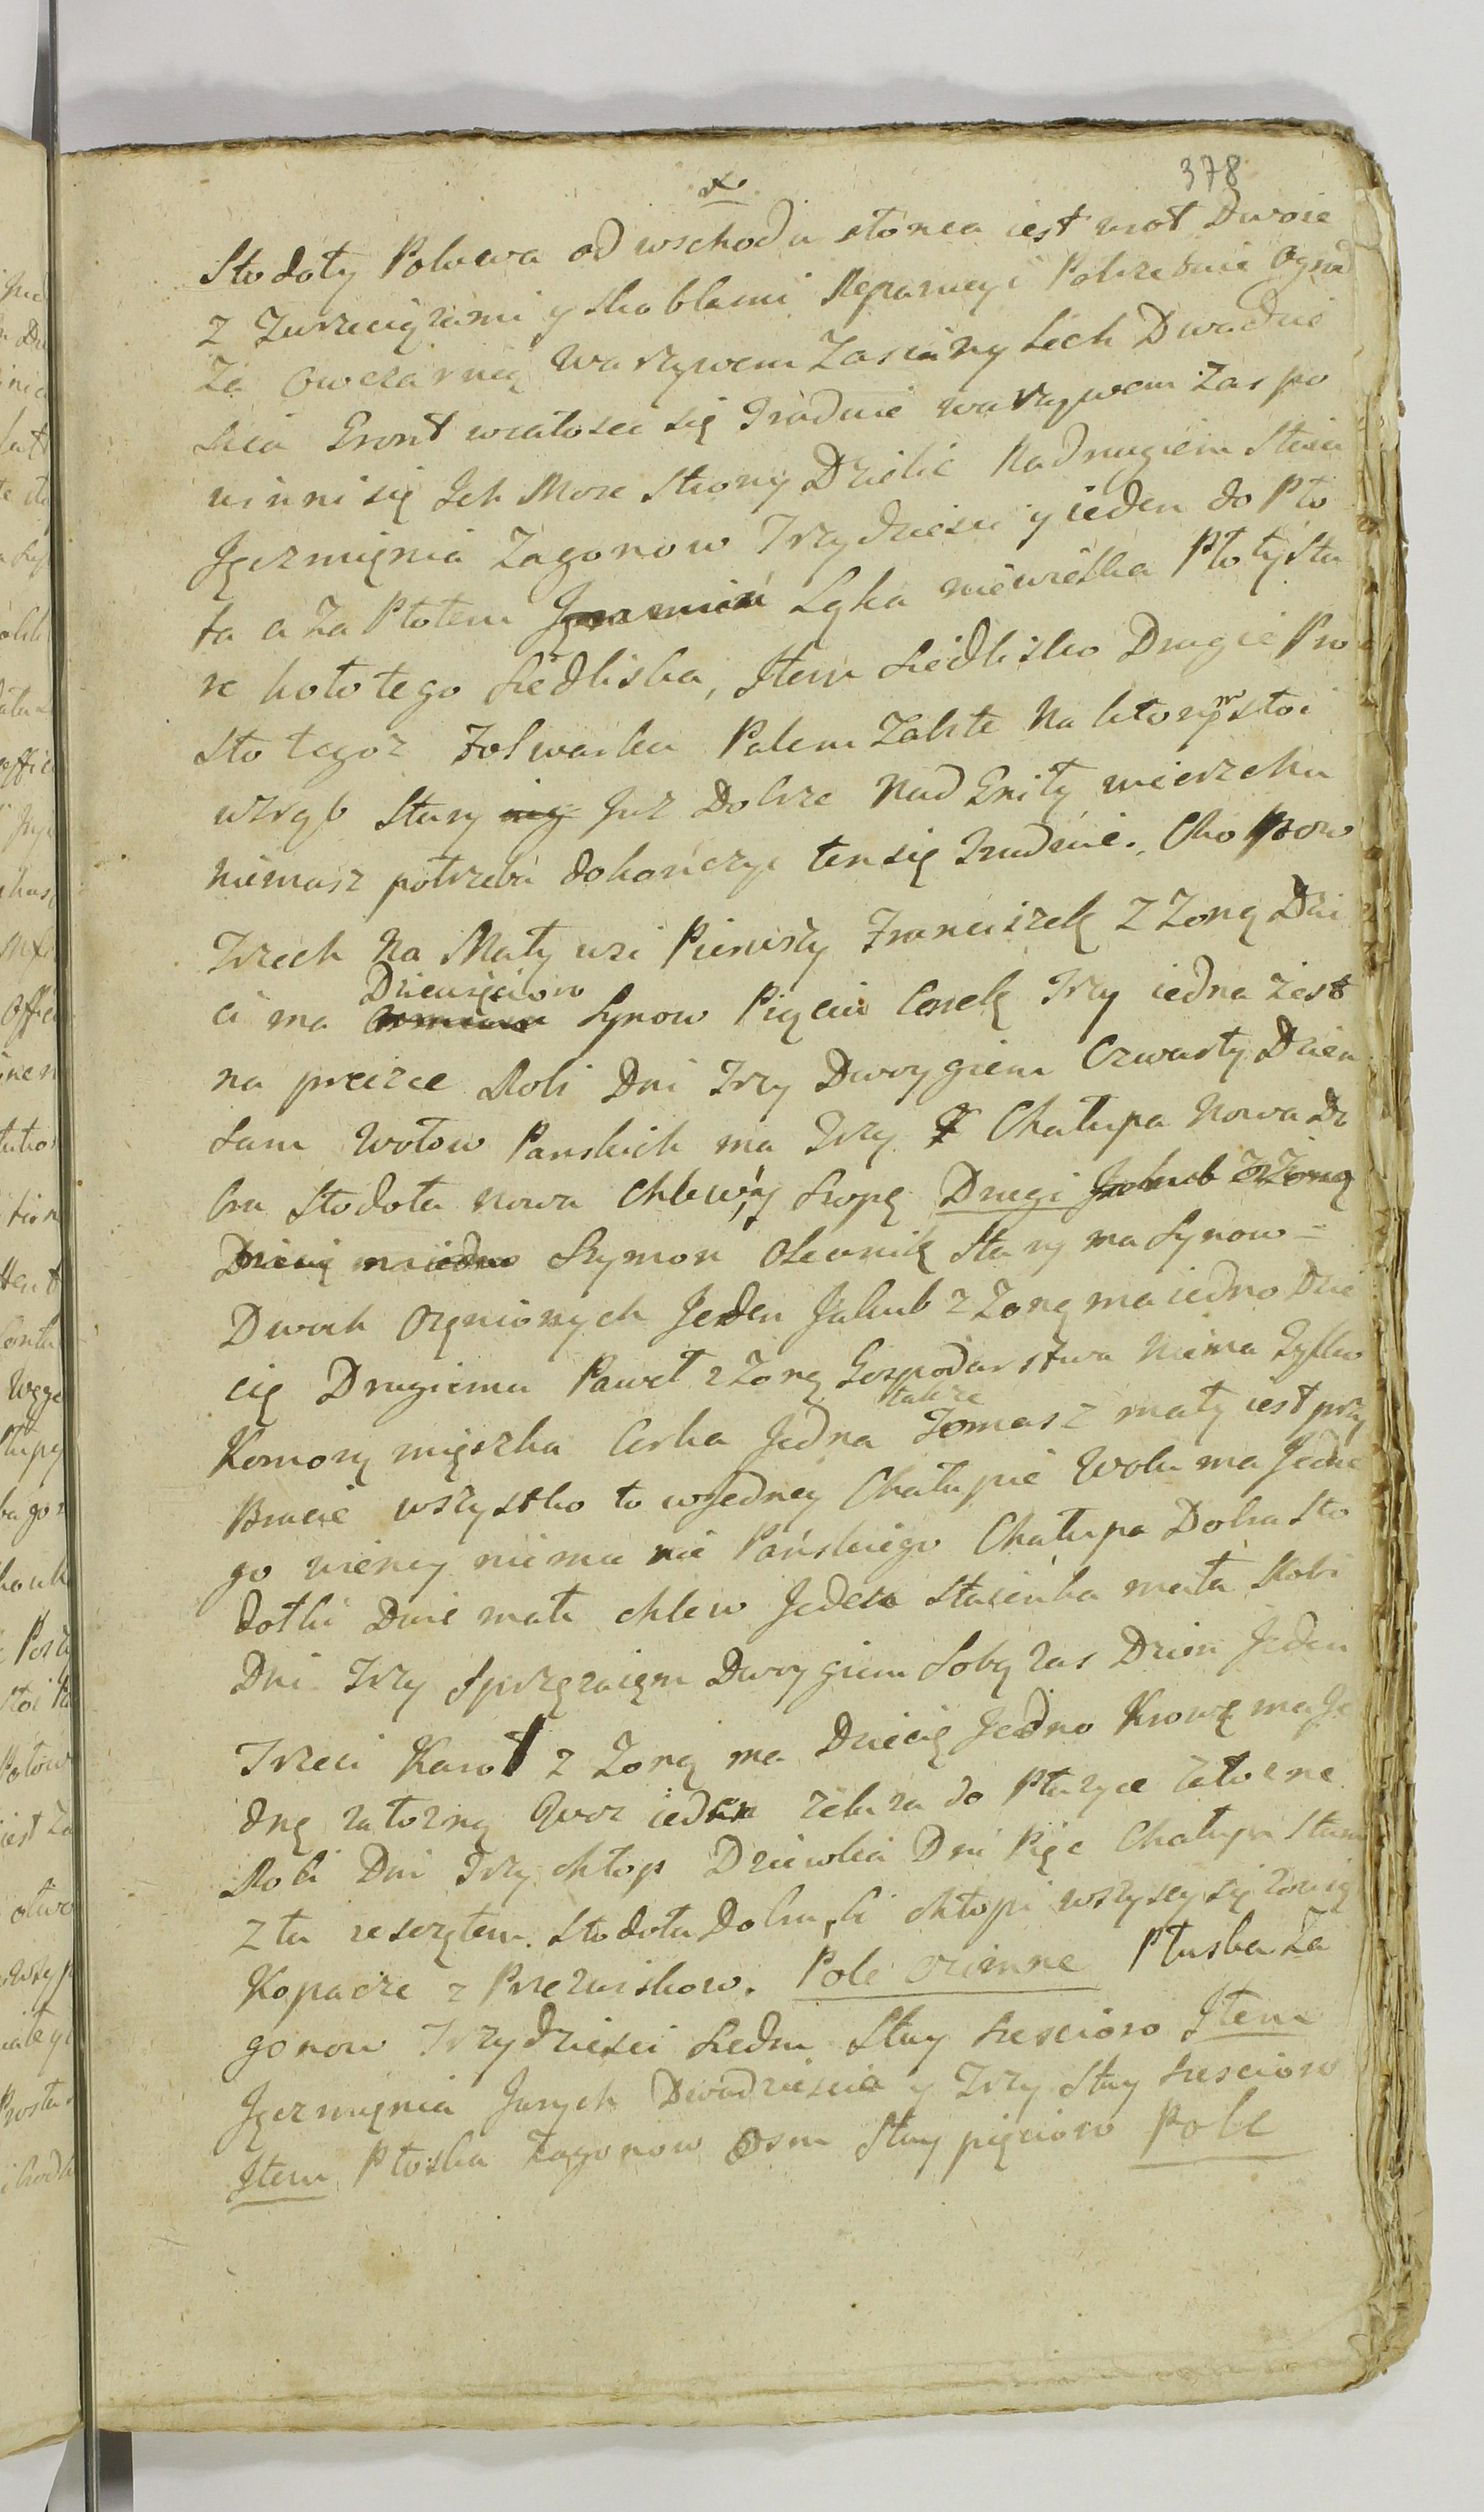 378
Stodoły Połowa od wschodu słonca iest wrot Dwoie
z Zwrzeciązami y skoblami Reparacyi Potrzebuie Ogrod
Za Owczarnią Warzywem Zasiany Lech Dwadzie
scia Gront wcałosci się Znaduie warzywem zas po
winni się Ich Mose Strony Dzielic Nadrugiem Staia
Jęczmięnia Zagonow Trzydziesci y ieden do Pło
ta a Za Płotem Łąka niewielka Płoty Sta
re koło tego Siedliska, Item Siedlisko Drugie Pro
sto tegoz Folwarku Palem Zabite Na ktorym stoi
wzrąb Stary Juz Dobrze Nad Gniły wierzchu
niemasz potrzeba dokończyc tensię Znaduie. Chopow
Trzech Na Mały wsi Pierwszy Franciszek Z Zoną Dzi
Dziewięcioro
ci ma Synow Pięciu Corek Trzy iedna zest
na preczce Robi Dni Trzy Dwoygiem Czwarty Dzien
Sam Wołow Panskich ma Trzy Chałupa Nowa Do
bra Stodoła nowa Chlewy y Szopę Drugi Jakub z Zoną
Dziecię ma iedno Szymon Olewnik Stary ma Synow =
Dwoch Ozęnionych Jeden Jakub z Zoną ma iedno Dzie
cię Drugiemu Paweł z Zoną Gospodarstwa Niema Tylko
także
Komorą mięszka Corka Jedna Tomasz mały iest przy
Bracie wszystko to w Jedney Chałupie Wołu ma Jedne
go więcy nima nic Pańskiego Chałupa Dobra Sto
dołki Dwie małe chlew Jeden Stasienka mała Robi
Dni Trzy Sprzęzaięm Dwoygiem Sobą zas Dzien Jeden
Trzeci Karol z Zoną ma Dziecię Jedno Krowę ma Je
dnę załozną Woz ieden zelaza do Płuzyce załozne
Robi Dni Trzy chłop Dziewka Dni Pięc Chałupa Stara
z ta Stodoła Dobra, Ci chłopi wszyscy się zowią
Kopacze z Przezwiskow. Pole Ozimne Płuska Za
gonow Trzydziesci Siedm Stay szescioro Item
Jęczmięnia Jarych Dwadziescia y Trzy Stay szescioro
Item Płoska Zagonow Osm Stay pięcioro Pole